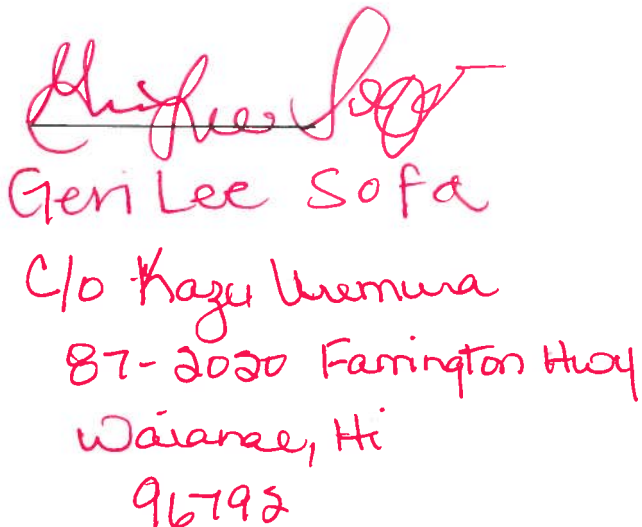 Geri Lee Sofa
Geri Lee Sofa
C/o Kazu Uremura
87-2020 Farrington Hwy
Waianae, Hi
96792